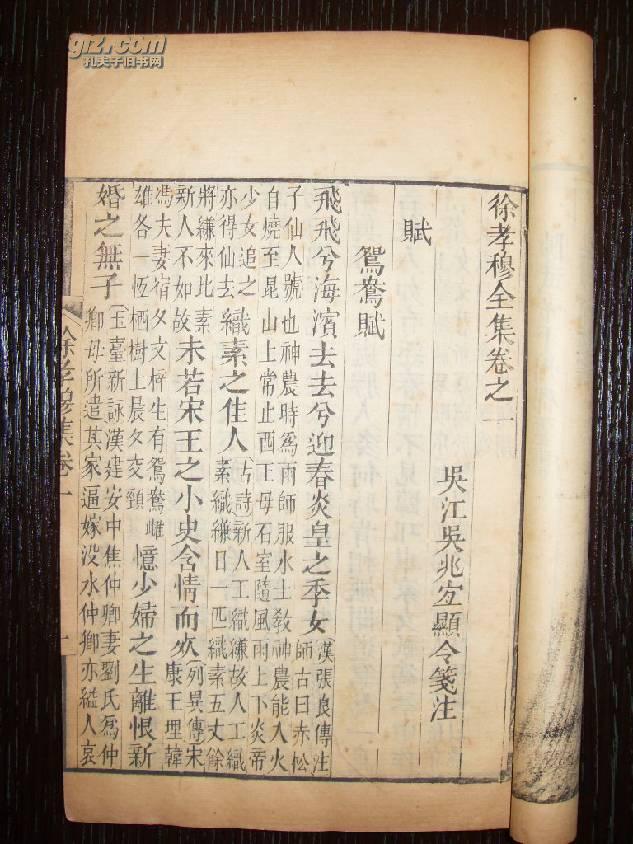 gjz.com
孔夫子旧书网
徐孝穆全集卷之一
吳江吳兆宜顯令箋注
賦
鴛鴦賦
飛飛兮海濱去去兮迎春炎皇之季女漢張良傳注師古曰赤松
子仙人號也神農時爲雨師服水土教神農能入火自燒至昆山上常止西王母石室隨風雨上下炎帝
少女追之亦得仙去織素之佳人古詩新人工織縑故人工織素織縑日一匹織素五丈餘
將縑來比素新人不如故未若宋王之小史含情而死列異傳宋康王埋韓
馮夫妻宿夕文梓生有鴛鴦雌雄各一恆栖樹上晨夕交頸憶少婦之生離恨新
婚之無子玉臺新詠漢建安中焦仲卿妻劉氏爲仲卿母所遣其家逼嫁没水仲卿亦縊人哀
徐孝穆集卷一
一